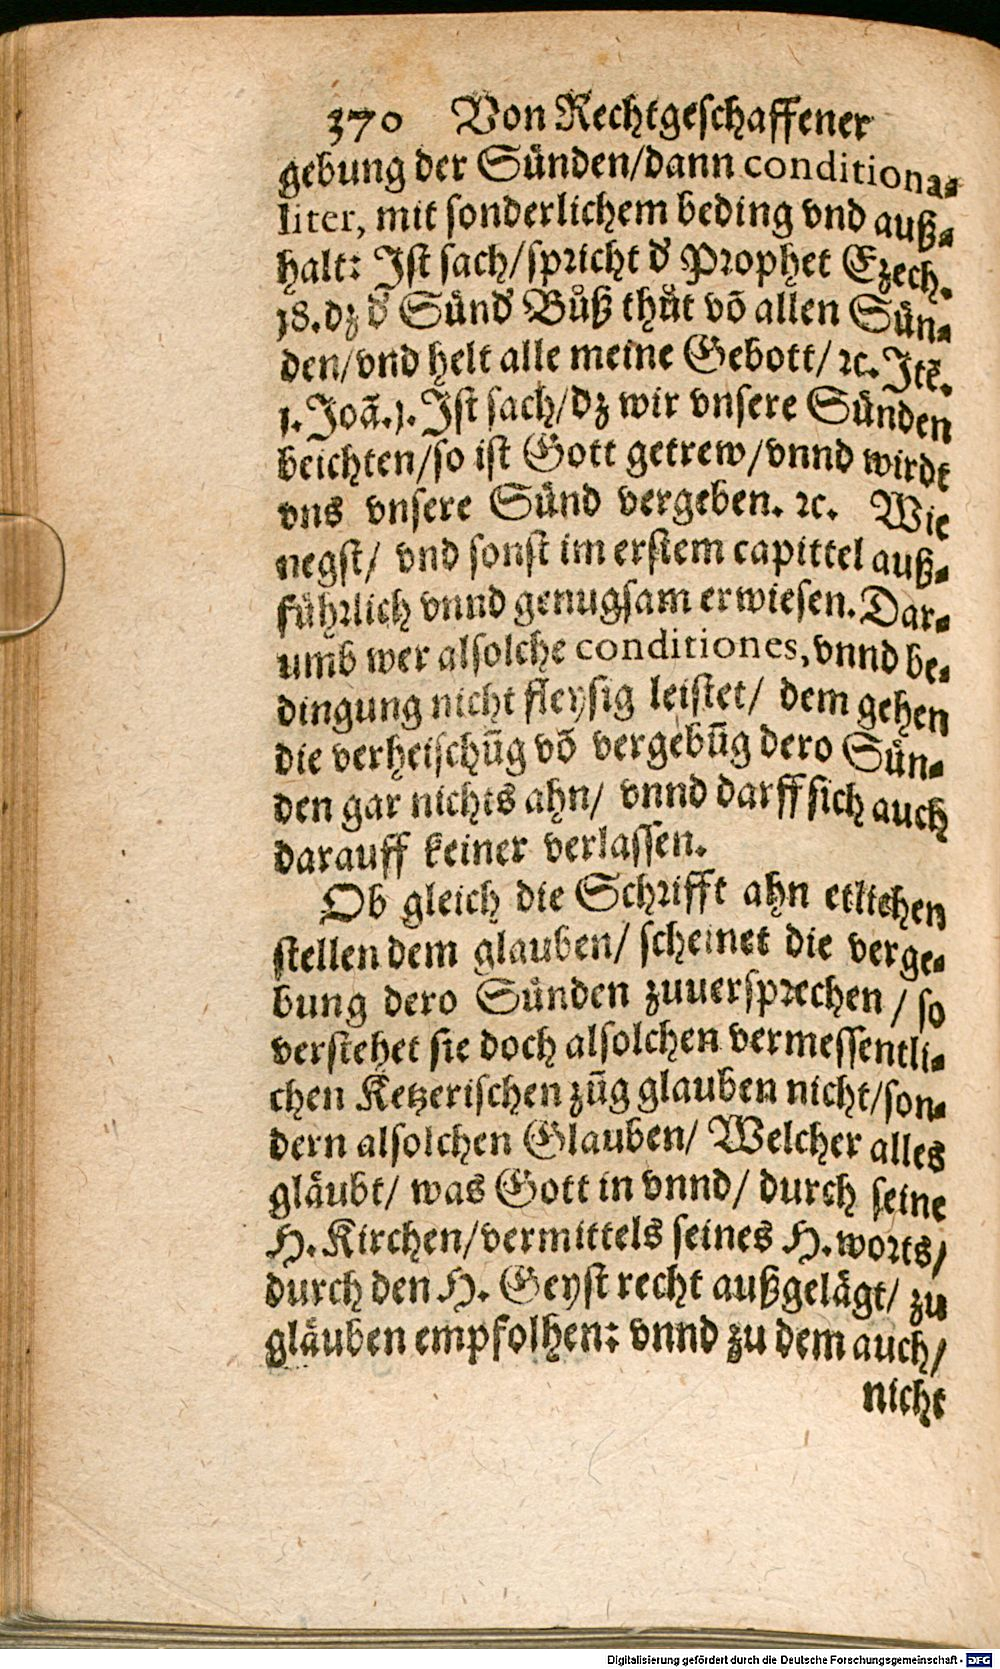 370 Von Rechtgeschaffener
gebung der Sünden/dann conditiona-
liter, mit sonderlichem beding vnd auß-
halt: Ist sach/spricht d' Prophet Ezech.
18. dz d' Sünd' Bůß thůt võ allen Sün-
den/vnd helt alle meine Gebott/ ꝛc. Itẽ.
1. Joã. 1. Ist sach/dz wir vnsere Sünden
beichten/so ist Gott getrew/vnnd wirdt
vns vnsere Sünd vergeben. ꝛc. Wie
negst/ vnd sonst im erstem capittel auß-
führlich vnnd genugsam erwiesen. Dar-
umb wer alsolche conditiones, vnnd be-
dingung nicht fleysig leistet/ dem gehen
die verheischũg võ vergebũg dero Sün-
den gar nichts ahn/ vnnd darff sich auch
darauff keiner verlassen.
Ob gleich die Schrifft ahn etlichen
stellen dem glauben/ scheinet die verge-
bung dero Sünden zuuersprechen / so
verstehet sie doch alsolchen vermessentli-
chen Ketzerischen zũg glauben nicht/son-
dern alsolchen Glauben/ Welcher alles
gläubt/ was Gott in vnnd/ durch seine
H. Kirchen/vermittels seines H. worts/
durch den H. Geyst recht außgelägt/ zu
gläuben empfolhen: vnnd zu dem auch/
nicht
Digitalisierung gefördert durch die Deutsche Forschungsgemeinschaft - DFG